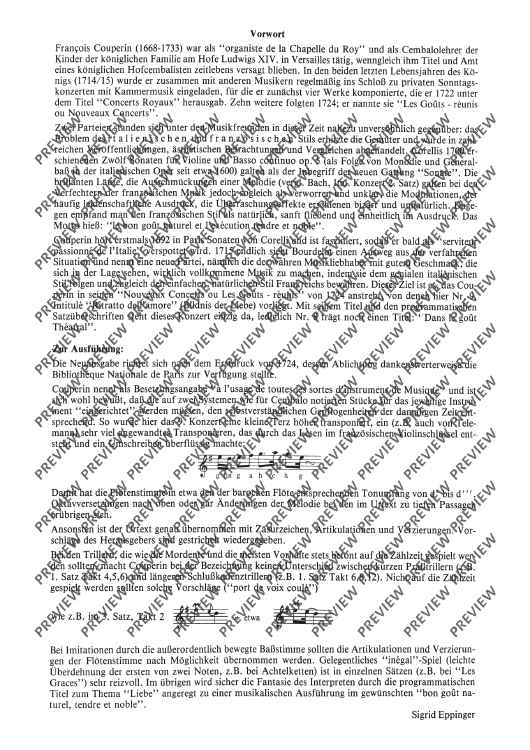 Vorwort
François Couperin (1668-1733) war als "organiste de la Chapelle du Roy" und als Cembalolehrer der
Kinder der königlichen Familie am Hofe Ludwigs XIV. in Versailles tätig, wenngleich ihm Titel und Amt
eines königlichen Hofcembalisten zeitlebens versagt blieben. In den beiden letzten Lebensjahren des Kö-
nigs (1714/15) wurde er zusammen mit anderen Musikern regelmäßig ins Schloß zu privaten Sonntags-
konzerten mit Kammermusik eingeladen, für die er zunächst vier Werke komponierte, die er 1722 unter
dem Titel "Concerts Royaux" herausgab. Zehn weitere folgten 1724; er nannte sie "Les Goûts - réunis
ou Nouveaux Concerts".
Zwei Parteien standen sich unter den Musikfreunden in dieser Zeit nahezu unversöhnlich gegenüber: das
Problem des italienischen und französischen Stils erhitzte die Gemüter und wurde in zahl-
reichen Veröffentlichungen, ästhetischen Betrachtungen und Vergleichen abgehandelt. Corellis 1700 er-
schienenen Zwölf Sonaten für Violine und Basso continuo op. 5 (als Folge von Monodie und General-
baß in der italienischen Oper seit etwa 1600) galten als der Inbegriff der neuen Gattung "Sonate". Die
brillanten Läufe, die Ausschmückungen einer Melodie (vergl. Bach, Ital. Konzert 2. Satz) galten bei den
Verfechtern der französischen Musik jedoch zugleich als verworren und unklar, die Modulationen, der
häufig leidenschaftliche Ausdruck, die Überraschungseffekte erschienen bizarr und unnatürlich. Dage-
gen empfand man den französischen Stil als natürlich, sanft fließend und einheitlich im Ausdruck. Das
Motto hieß: "le bon goût naturel et l'exécution tendre et noble".
Couperin hört erstmals 1692 in Paris Sonaten von Corelli und ist fasziniert, sodaß er bald als "serviteur
passionné de l'Italie" verspottet wird. 1715 endlich sieht Bourdelot einen Ausweg aus der verfahrenen
Situation und nennt eine neue Partei, nämlich die der wahren Musikliebhaber mit gutem Geschmack, die
sich in der Lage sehen, wirklich vollkommene Musik zu machen, indem sie dem genialen italienischen
Stil folgen und zugleich den einfachen, natürlichen Stil Frankreichs bewahren. Dieser Ziel ist es, das Cou-
perin in seinen "Nouveaux Concerts ou Les Goûts - réunis" von 1724 anstrebt, von denen hier Nr. 9,
Intitulé "Ritratto dell'amore" (Bildnis der Liebe) vorliegt. Mit seinem Titel und den programmatischen
Satzüberschriften steht dieses Konzert einzig da, lediglich Nr. 8 trägt noch einen Titel: "Dans le goût
Théatral".
Zur Ausführung:
Die Neuausgabe richtet sich nach dem Erstdruck von 1724, dessen Ablichtung dankenswerterweise die
Bibliothèque Nationale de Paris zur Verfügung stellte.
Couperin nennt als Besetzungsangabe "à l'usage de toutes les sortes d'instruments de Musique" und ist
sich wohl bewußt, daß die auf zwei Systemen wie für Cembalo notierten Stücke für das jeweilige Instru-
ment "eingerichtet" werden müssen, den selbstverständlichen Gepflogenheiten der damaligen Zeit ent-
sprechend. So wurde hier das 9. Konzert eine kleine Terz höher transponiert, ein (z.B. auch von Tele-
mann) sehr viel angewandtes Transponieren, das durch das Lesen im französischen Violinschlüssel ent-
steht und ein Umschreiben überflüssig machte:
Damit hat die Flötenstimme in etwa den der barocken Flöte entsprechenden Tonumfang von d' bis d'''.
Oktavversetzungen nach oben oder gar Änderungen der Melodie bei den im Urtext zu tiefen Passagen
erübrigen sich.
Ansonsten ist der Urtext genau übernommen mit Zusatzzeichen, Artikulationen und Verzierungen. Vor-
schläge des Herausgebers sind gestrichelt wiedergegeben.
Bei den Trillern, die wie die Mordente und die meisten Vorhalte stets betont auf die Zählzeit gespielt wer-
den sollten, macht Couperin bei der Bezeichnung keinen Unterschied zwischen kurzen Pralltrillern (z.B.
1. Satz Takt 4,5,6) und längeren Schlußkadenztrillern (z.B. 1. Satz Takt 6,8,12). Nicht auf die Zählzeit
gespielt werden sollten solche Vorschläge ("port de voix coulé")
wie z.B. im 3. Satz, Takt 2
etwa
Bei Imitationen durch die außerordentlich bewegte Baßstimme sollten die Artikulationen und Verzierun-
gen der Flötenstimme nach Möglichkeit übernommen werden. Gelegentliches "inégal"-Spiel (leichte
Überdehnung der ersten von zwei Noten, z.B. bei Achtelketten) ist in einzelnen Sätzen (z.B. bei "Les
Graces") sehr reizvoll. Im übrigen wird sicher die Fantasie des Interpreten durch die programmatischen
Titel zum Thema "Liebe" angeregt zu einer musikalischen Ausführung im gewünschten "bon goût na-
turel, tendre et noble".
Sigrid Eppinger